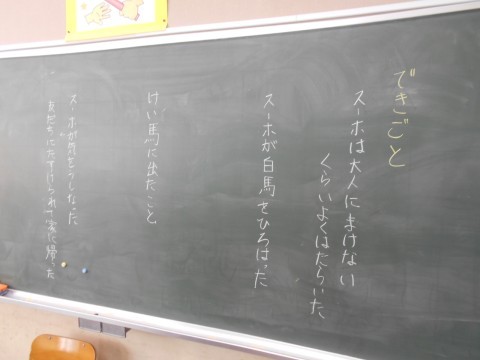 できごと
スーホは大人にまけない
くらいよくはたらいた
スーホが白馬をひろった
けい馬に出たこと
スーホが気をうしなった
友だちにたすけられて家に帰った